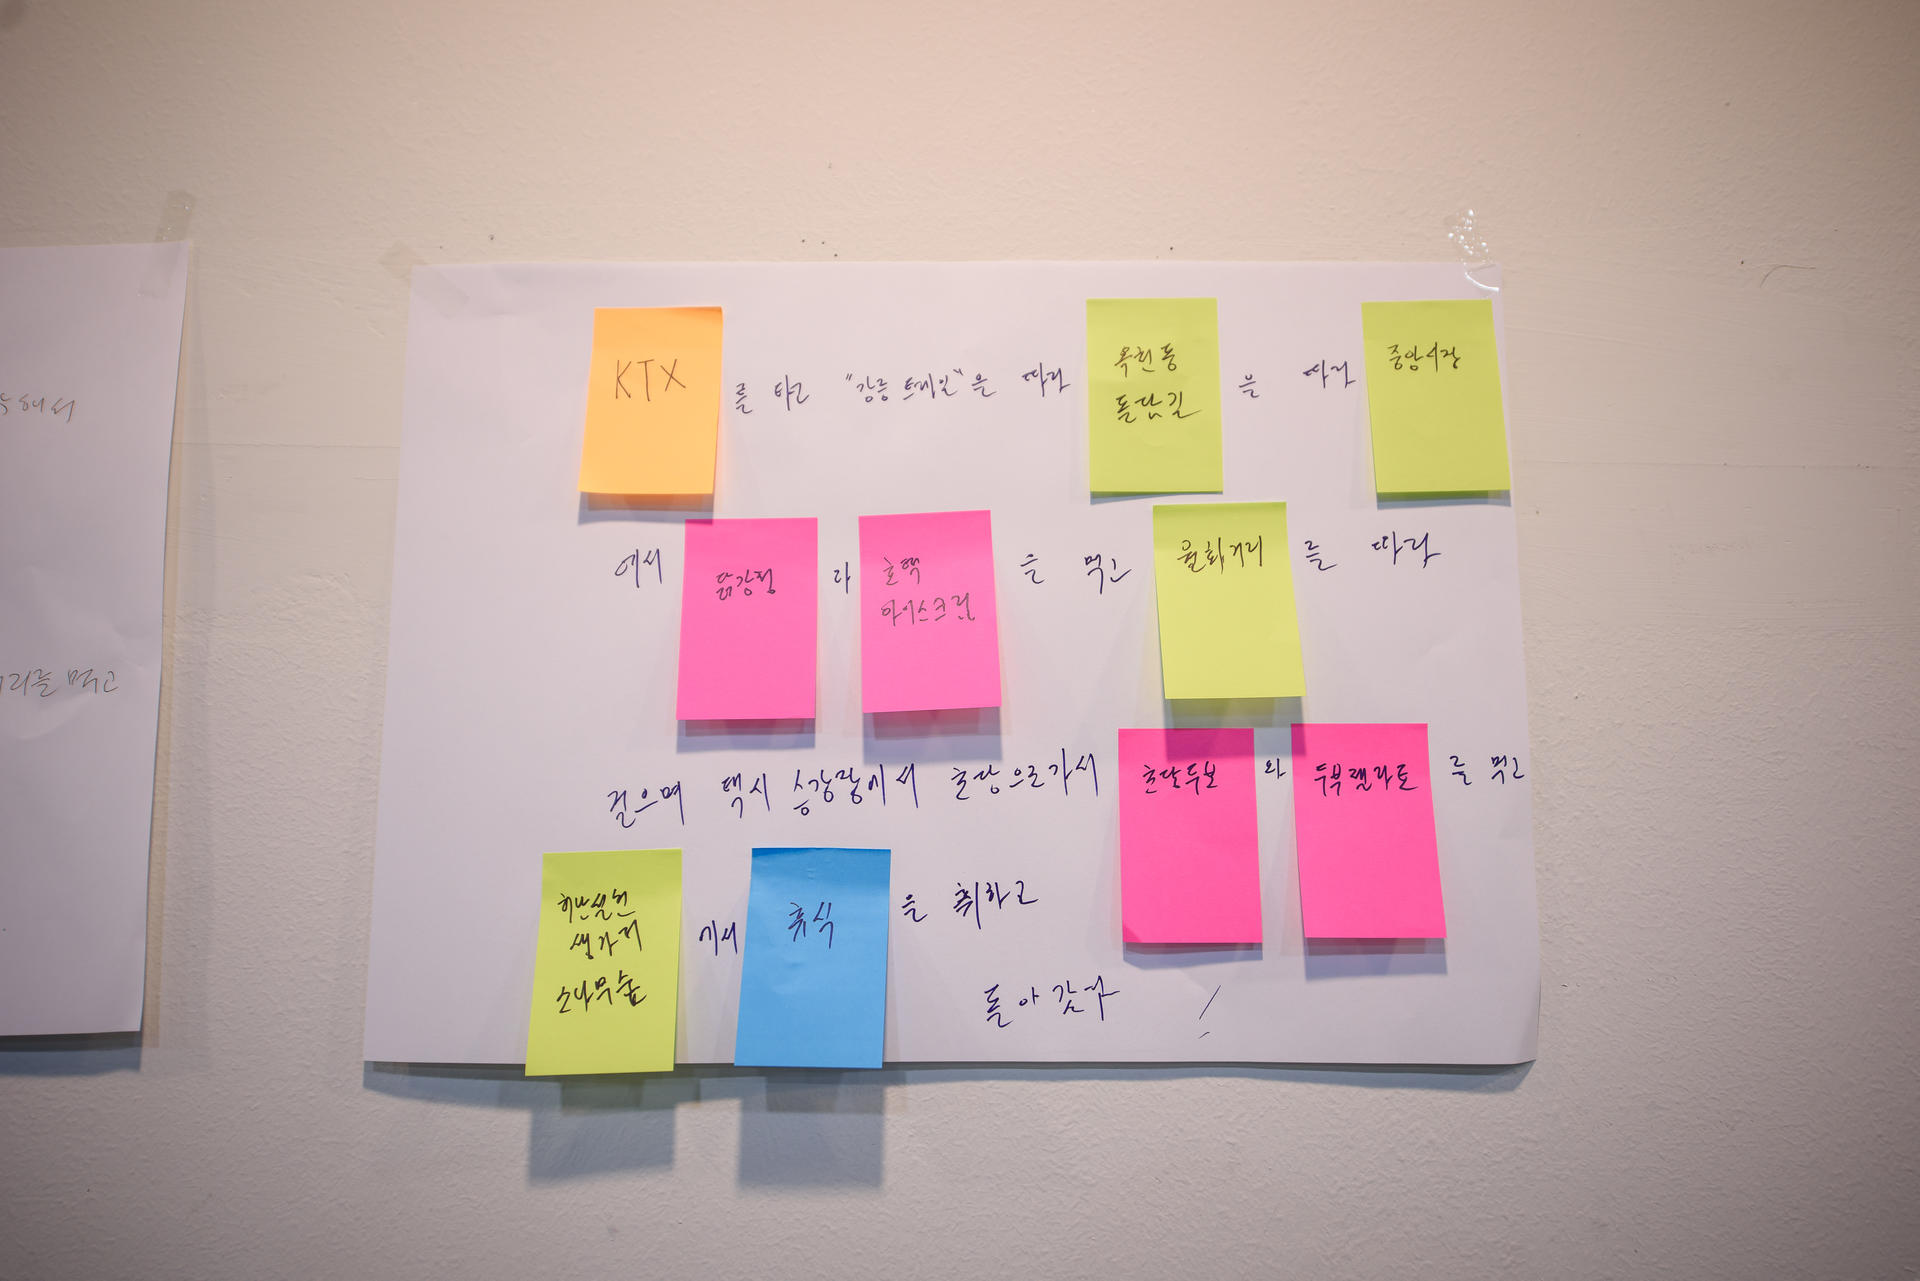 해서
리를 먹고
KTX 를 타고 "강릉 트레일"을 따라 옥천동 돌담길 을 따라 중앙시장
에서 닭강정 과 호떡 아이스크림 을 먹고 월화거리 를 따라
걸으며 택시 승강장에서 초당으로가서 초당두부 와 두부젤라또 를 먹고
허난설헌 생가터 소나무숲 에서 휴식 을 취하고
돌아간다 !